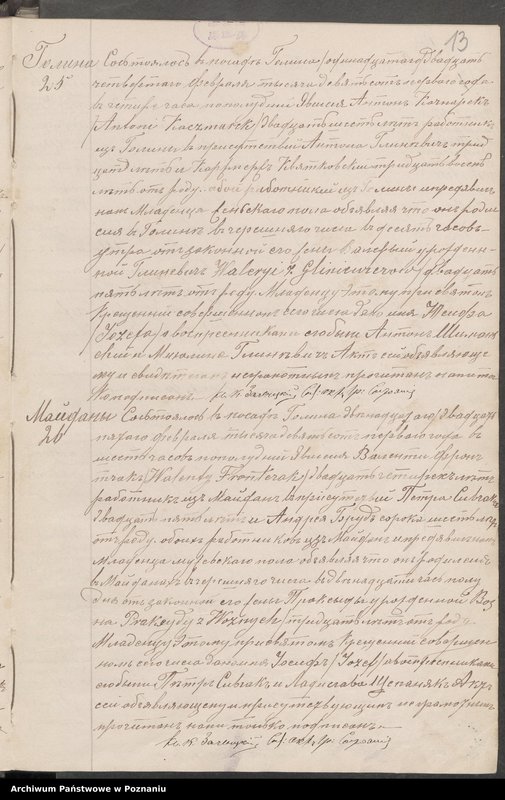 13
Голина Состоялось въ посадѣ Голина одинадцатаго двадцать
25 четвертаго Февраля тысяча девятьсотъ перваго года
въ четыре часа пополудни Явился Антонъ Качмарекъ
/Antoni Kaczmarek/ двадцать шесть лѣтъ работникъ
изъ Голины въ присутствіи Антона Глинкевича трид
цати лѣтъ и Квятковскаго тридцать восемь
лѣтъ отъ роду обоихъ работниковъ изъ Голины и предъявилъ
намъ Младенца женскаго пола объявляя что онъ родил
ся въ Голинѣ вчерашняго числа въ десять часовъ
утра отъ законной его жены Валеріи урожден-
ной Глинкевичъ Walerye z Glinkiewiczów / двадцать
пять лѣтъ отъ роду Младенцу этому при святомъ
Крещеніи совершонномъ сего числа дано имя Юзефа
/Józefa/ а воспреемниками его были Антонъ
и Глинкевичъ Актъ сей объявляюще
му и свидѣтелямъ неграмотнымъ прочитанъ нами только
подписанъ.
Майданы Состоялось въ посадѣ Голина двѣнадцатаго / двадцать
26 пятаго Февраля тысяча девятьсотъ перваго года въ
шесть часовъ пополудни Явился Валентій Фронт
чакъ /Walenty Frontczak/ двадцать четырехъ лѣтъ
работникъ изъ Майданъ въ присутствіи Петра Сивяка
двадцати пяти лѣтъ и Андрея сорока шести лѣтъ
отъ роду обоихъ работниковъ изъ Майданъ и предъявилъ намъ
Младенца мужескаго пола объявляя что онъ родился
въ Майданахъ вчерашняго числа въ двѣнадцать часъ полу
дня отъ законной его жены Праксиды урожденной Воз
на Praksydy z Woznych / тридцать лѣтъ отъ роду
Младенцу этому при святомъ Крещеніи совершон
номъ сего числа дано имя Іосифъ /Józef/ а воспреемниками
его были Петръ Сивякъ и Владислава Щепанякъ Актъ
сей объявляющему и присутствующимъ неграмотнымъ
прочитанъ нами только подписанъ.
Archiwum Państwowe w Poznaniu